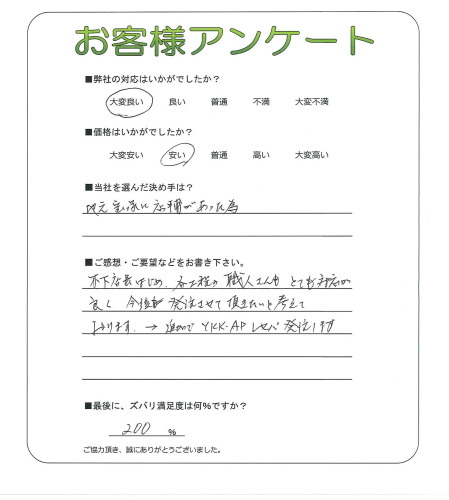 お客様アンケート
■弊社の対応はいかがでしたか？
大変良い 良い 普通 不満 大変不満
■価格はいかがでしたか？
大変安い 安い 普通 高い 大変高い
■当社を選んだ決め手は？
地元宝塚に店舗があった為
■ご感想・ご要望などをお書き下さい。
木下店長はじめ、各工程の職人さんも とても対応が
良く 今後も 発注させて頂きたいと考えて
おります。→ 追加で YKK・AP 発注します
■最後に、ズバリ満足度は何％ですか？
200 ％
ご協力頂き、誠にありがとうございました。